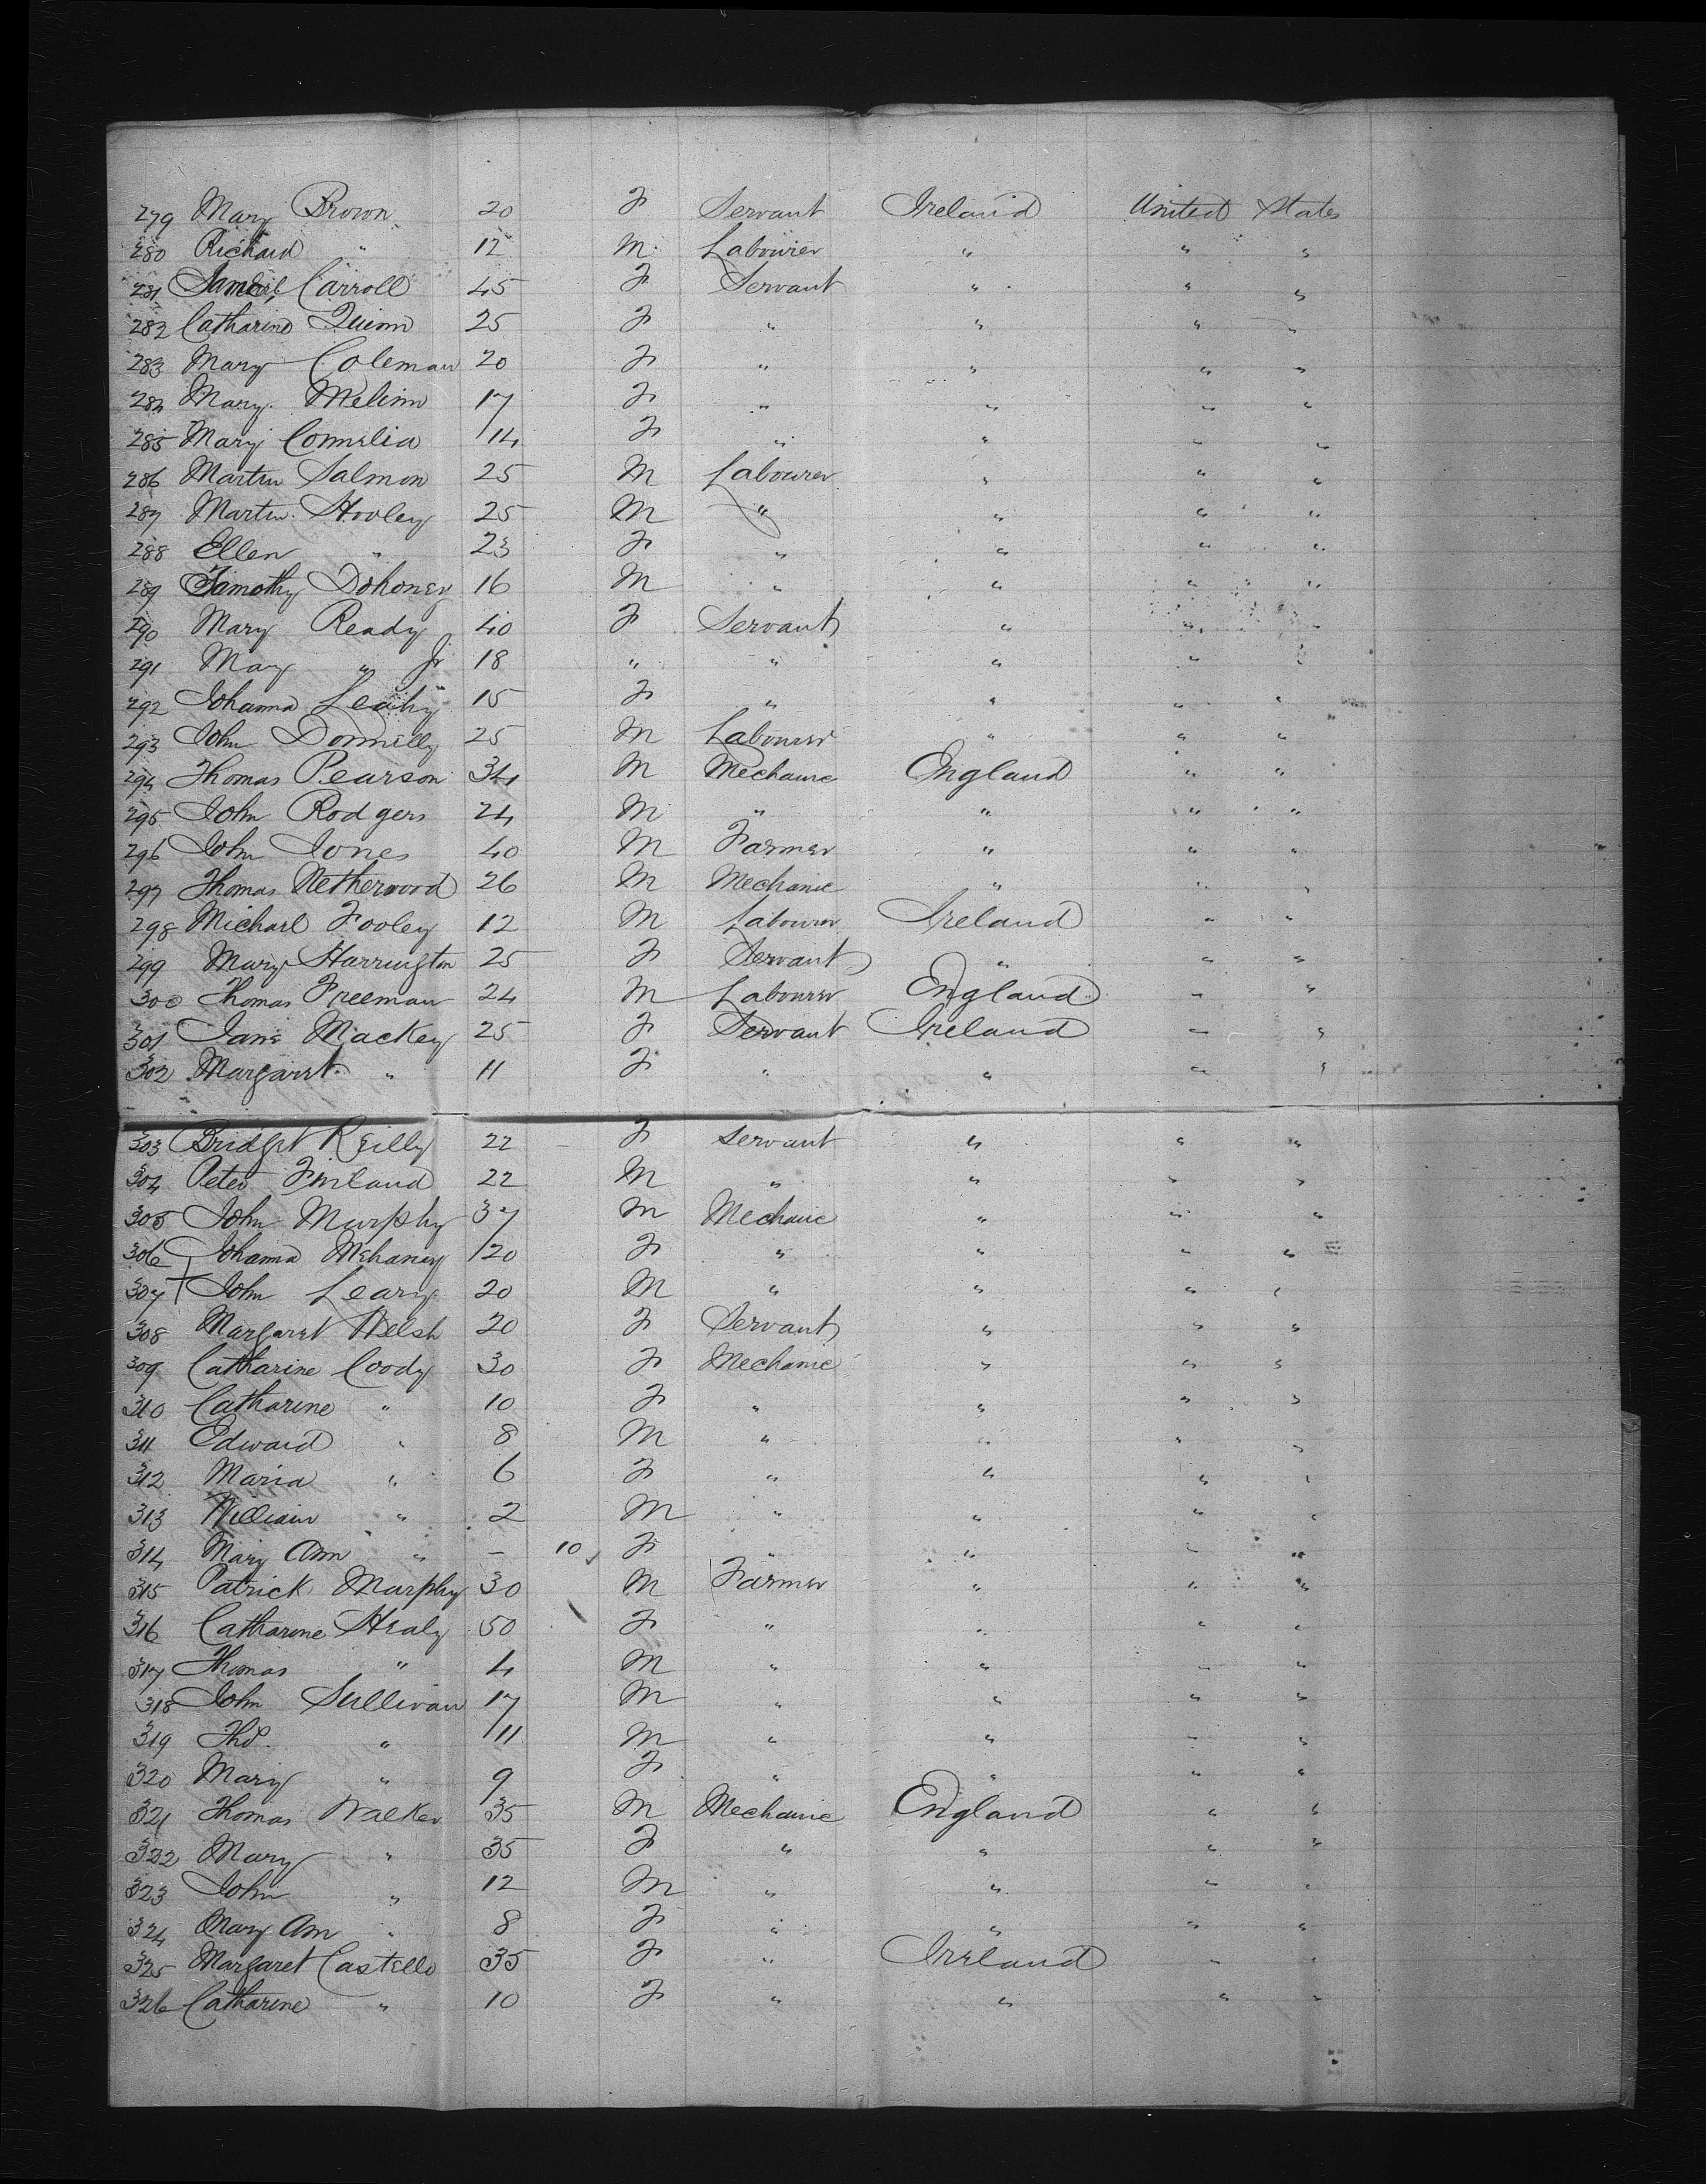 279 Mary Brown 20 F Servant Ireland United States
280 Richard " 12 M Labourer " " "
281 Carroll 45 F Servant " " "
282 Catharine Quinn 25 F " " " "
283 Mary Coleman 20 F " " " "
284 Mary Melinn 17 F " " " "
285 Mary Connelia 14 F " " " "
286 Martin Salmon 25 M Labourer " " "
287 Martin Hooley 25 M " " " "
288 Ellen " 23 F " " " "
289 Timothy Dohoney 16 M " " " "
290 Mary Ready 40 F Servant " " "
291 Mary " Jr 18 " " " " "
292 Johanna Leahy 15 F " " " "
293 John Donnelly 25 M Labourer " " "
294 Thomas Pearson 34 M Mechanic England " "
295 John Rodgers 24 M " " " "
296 John Jones 40 M Farmer " " "
297 Thomas Netherwood 26 M Mechanic " " "
298 Michael Fooley 12 M Labourer Ireland " "
299 Mary Harrington 25 F Servant " " "
300 Thomas Freeman 24 M Labourer England " "
301 Jane Mackey 25 F Servant Ireland " "
302 Margaret " 11 F " " " "
303 Bridget Reilly 22 F Servant " " "
304 Peter Finland 22 M " " " "
305 John Murphy 37 M Mechanic " " "
306 Johanna Mehaney 20 F " " " "
307 + John Leary 20 M " " " "
308 Margaret Welsh 20 F Servant " " "
309 Catharine Coody 30 F Mechanic " " "
310 Catharine " 10 F " " " "
311 Edward " 8 M " " " "
312 Maria " 6 F " " " "
313 William " 2 M " " " "
314 Mary Ann " - 10 F " " " "
315 Patrick Murphy 30 M Farmer " " "
316 Catharine Healy 50 F " " " "
317 Thomas " 4 M " " " "
318 John Sullivan 17 M " " " "
319 Thos. " 11 M " " " "
320 Mary " 9 F " " " "
321 Thomas Walker 35 M Mechanic England " "
322 Mary " 35 F " " " "
323 John " 12 M " " " "
324 Mary Ann " 8 F " " " "
325 Margaret Castello 35 F " Ireland " "
326 Catharine " 10 F " " " "